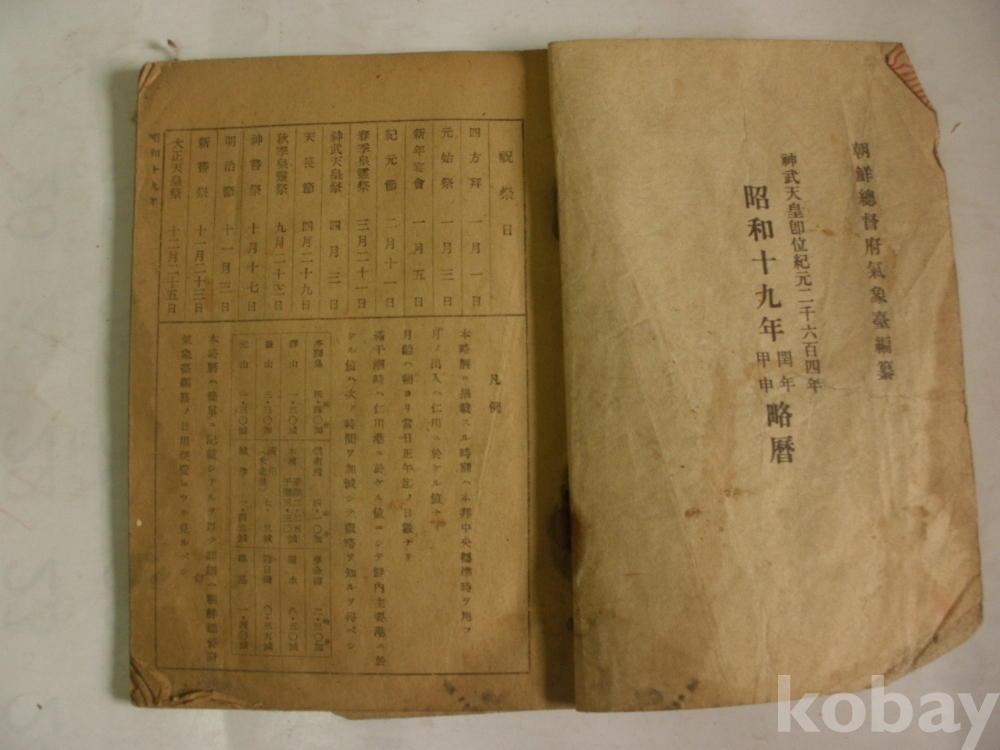 朝鮮總督府氣象臺編纂
神武天皇卽位紀元二千六百四年
昭和十九年 閏年 甲申 略曆
祝祭日
四方拜 一月一日
元始祭 一月三日
新年宴會 一月五日
紀元節 二月十一日
春季皇靈祭 三月二十一日
神武天皇祭 四月三日
天長節 四月二十九日
秋季皇靈祭 九月二十三日
神嘗祭 十月十七日
明治節 十一月三日
新嘗祭 十一月二十三日
大正天皇祭 十二月二十五日
凡例
本略曆ニ揭載スル時刻ハ本邦中央標準時ヲ用フ
月ノ出入ハ仁川ニ於ケル値ナリ
月齡ハ朔ヨリ當日正午迄ノ日數ナリ
滿干潮時ハ仁川港ニ於ケル値ニシテ鮮內主要港ニ於
ケル値ハ次ノ時間ヲ加減シテ槪略ヲ知ルヲ得ベシ
群山 一・三〇加
釜山 三・三〇加
元山 一・三〇減
城津 一・四五減
清水 八・三〇加
本略曆ハ簡單ニ記載シアルヲ以テ詳細ハ朝鮮總督府
氣象臺編纂ノ日用便覽ニツキ見ルベシ
昭和十九年
kobay